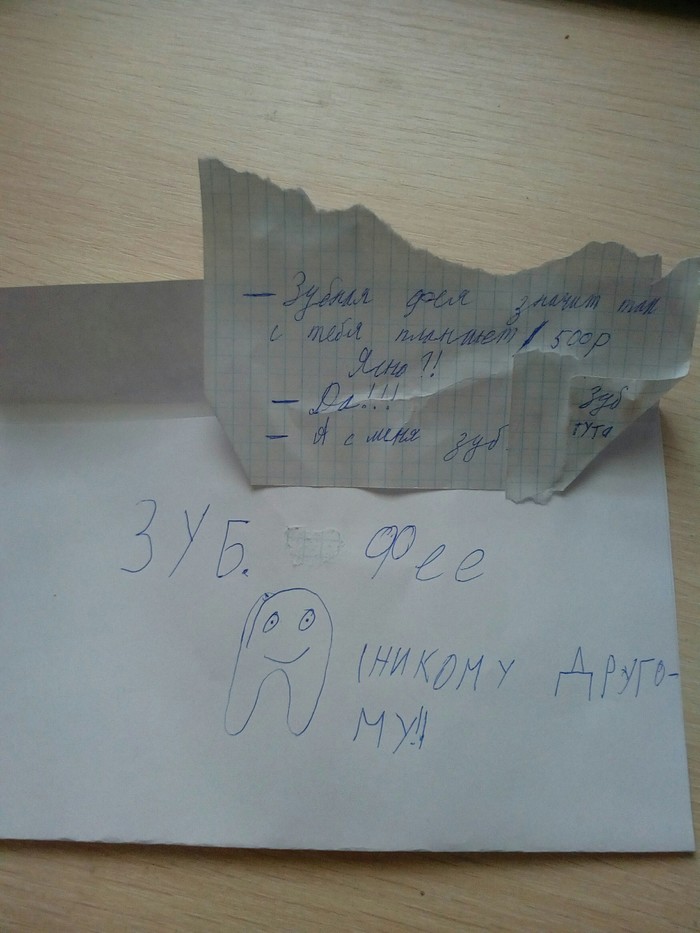 — Зубная фея значит так
с тебя планшет / 500р
Ясно?!
— Да!!!
— А с меня зуб.
Зуб
тута
ЗУБ. Фее
(НИКОМУ ДРУГО-
МУ!!